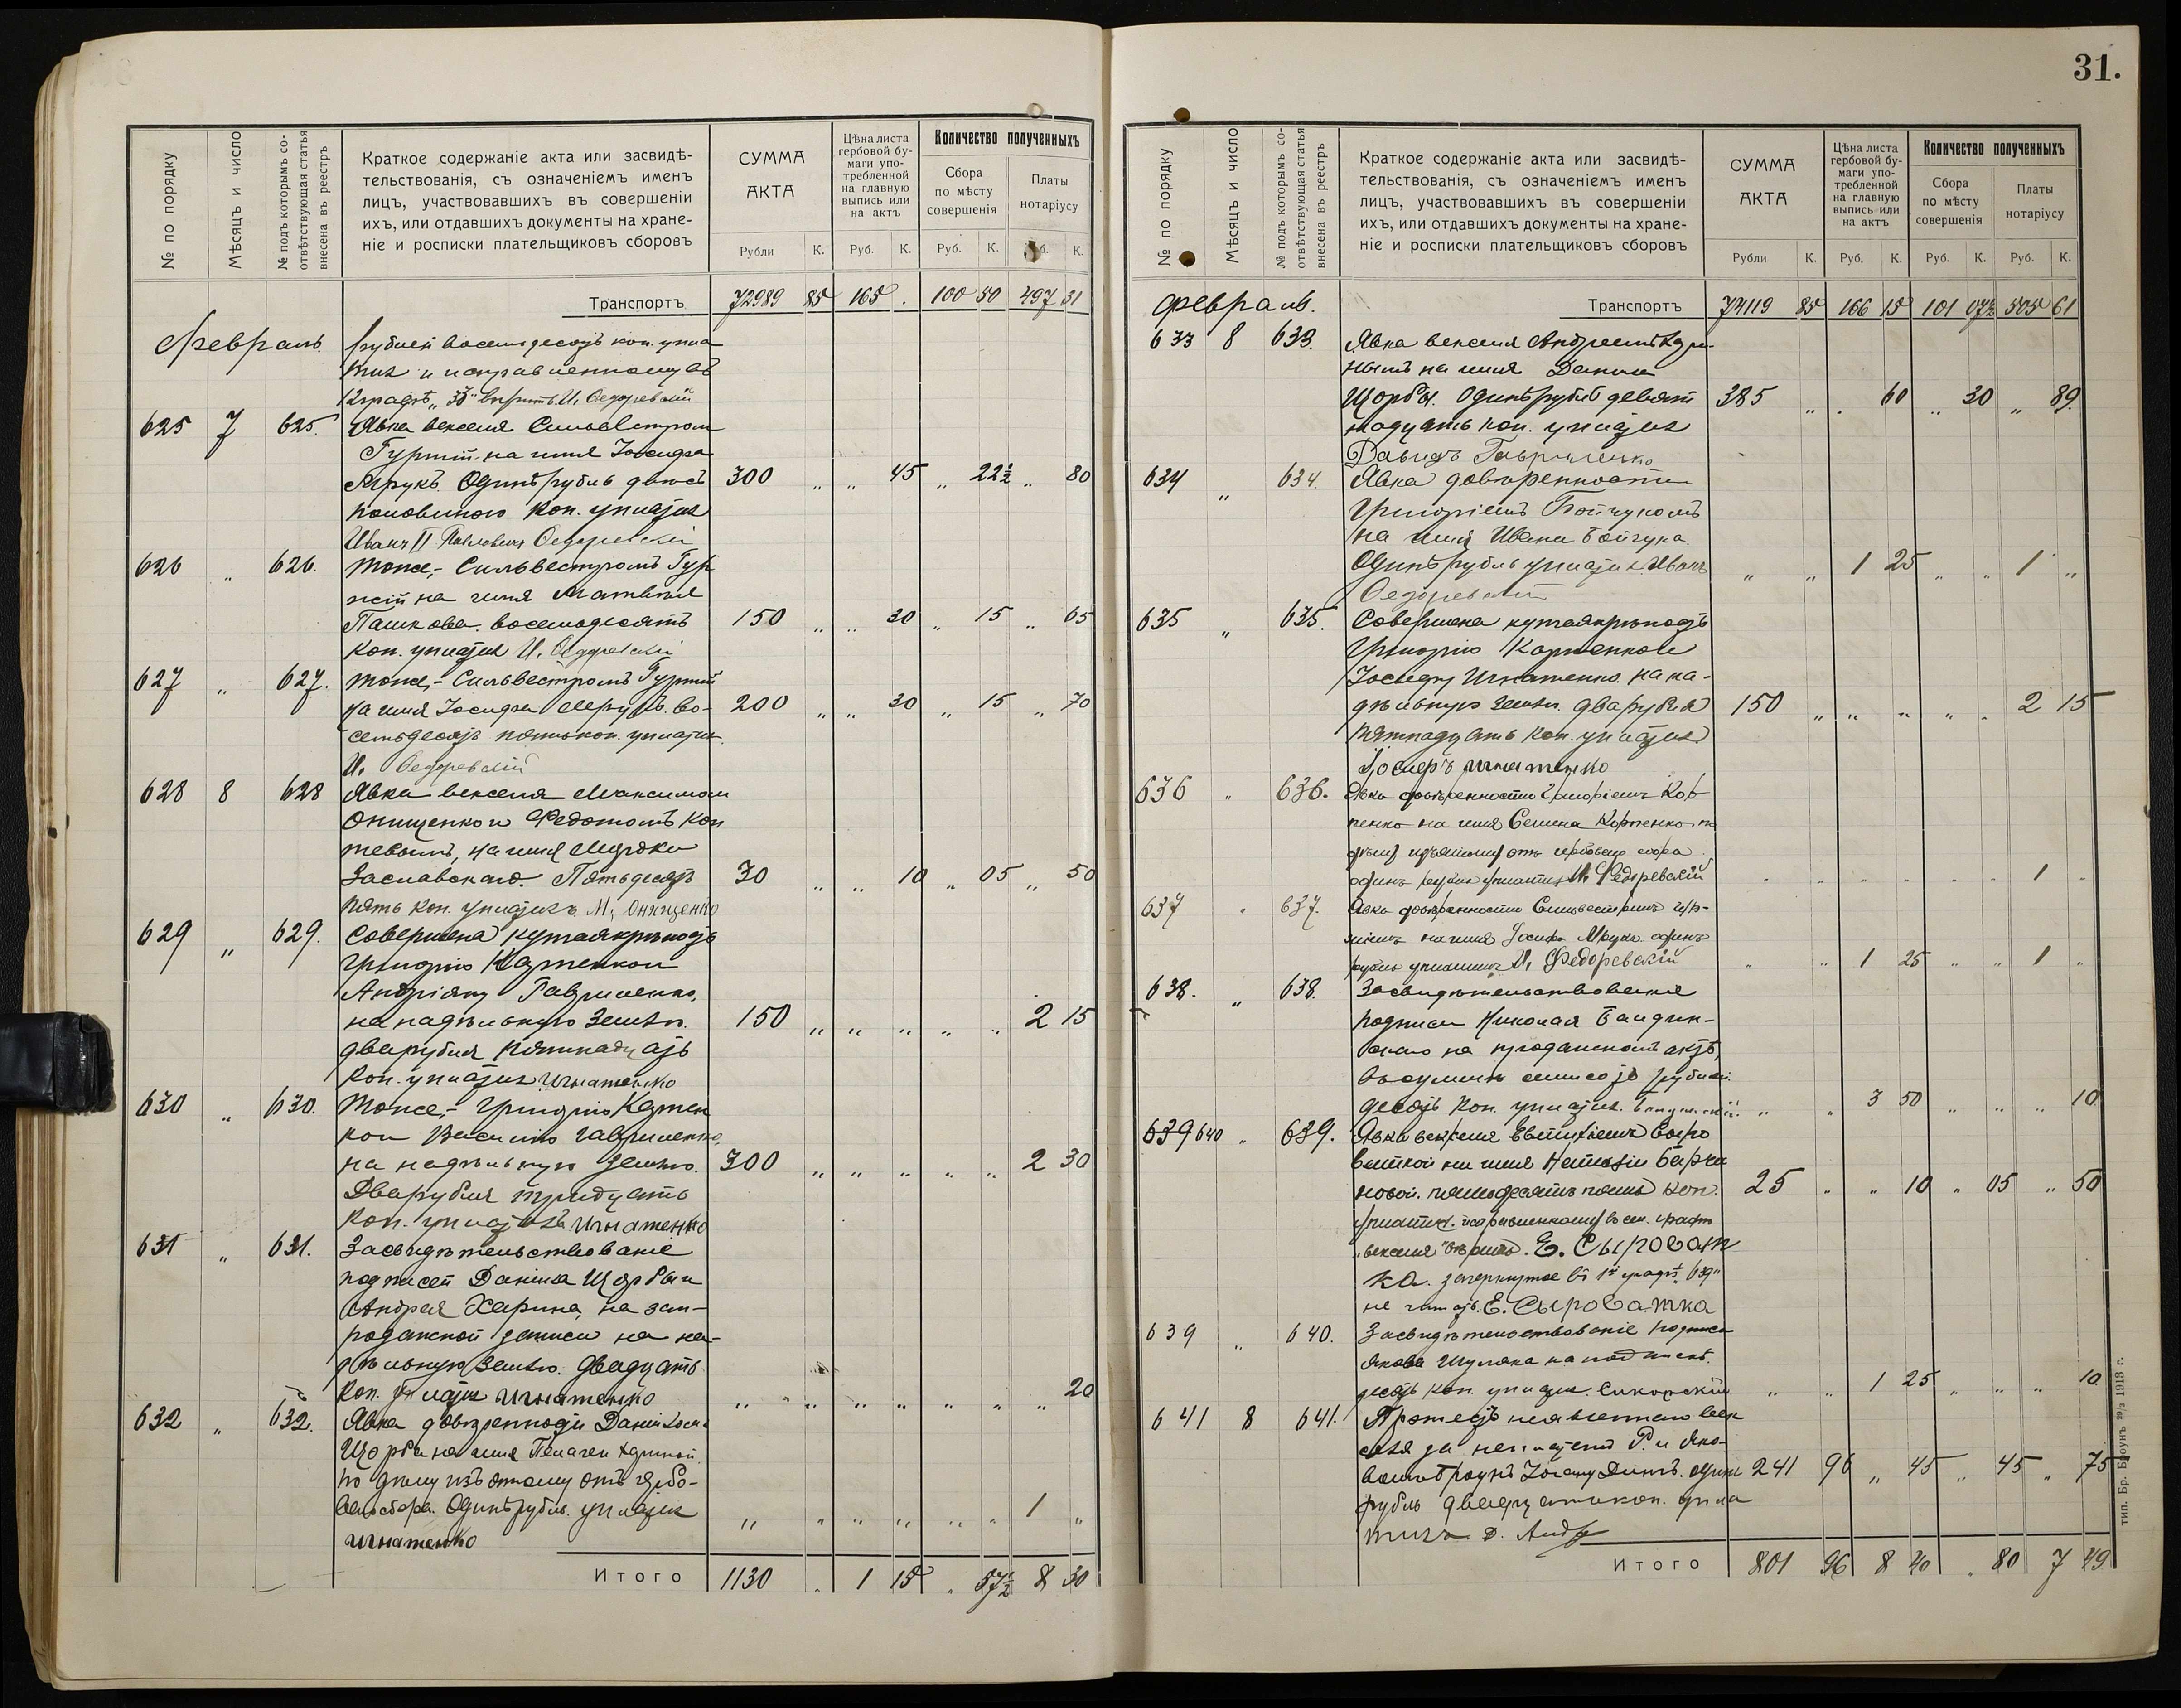 31.
№ по порядку
Мѣсяцъ и число
№ подъ которымъ со-
отвѣтствующая статья
внесена въ реестръ
Краткое содержаніе акта или засвидѣ-
тельствованія, съ означеніемъ именъ
лицъ, участвовавшихъ въ совершеніи
ихъ, или отдавшихъ документы на хране-
ніе и росписки плательщиковъ сборовъ
СУММА
АКТА
Рубли К.
Цѣна листа
гербовой бу-
маги упо-
требленной
на главную
выпись или
на актъ
Руб. К.
Количество полученныхъ
Сбора
по мѣсту
совершенія
Руб. К.
Платы
нотаріусу
К.
Транспортъ 72989 85 165 . 100 50 497 31
Февраль. рублей восемьдесятъ коп. упла
тилъ и исправленному въ
12 графѣ „35“ вѣрить. И. Федоревскій
625 7 625. Явка векселя Сильвестром
на имя Іосифа
Мрукъ Одинъ рубль двѣсъ 300 „ „ 45 „ 22½ „ 80
половиною коп. уплатилъ
Иванъ П Павловичъ Федоревскій
626 „ 626. Тоже,- Сильвестромъ Гур
жій на имя Матвѣя
Пашкова. восемьдесятъ 150 „ „ 30 „ 15 „ 65
коп. уплатилъ И. Федоревскій
627 „ 627. Тоже,- Сильвестромъ Гуржій
на имя Іосифа Мрукъ. во- 200 „ „ 30 „ 15 „ 70
семьдесятъ пять коп. уплатилъ.
И. Федоревскій
628 8 628 Явка векселя Максимом
Онищенко и Федотомъ Коп
тевымъ, на имя
Заславскаго. Пятьдесятъ 30 „ „ 10 „ 05 „ 50
пять коп. уплатилъ М. Онищенко
629 „ 629. Совершена купчая крѣпость
Григорію
Андріяну Гавриленко,
на надѣльную землю. 150 „ „ „ „ „ 2 15
два рубля пятнадцать
коп. уплатилъ Игнатенко
630 „ 630. Тоже,- Григорію
Василію Гавриленко,
на надѣльную землю. 300 „ „ „ „ „ 2 30
Два рубля тридцать
коп. уплатилъ Игнатенко
631 „ 631. Засвидѣтельствованіе
подписей Данила Щорбы и
Андрея Харина, на зап-
роданской записи на на-
дѣльную землю. Двадцать
коп. уплатилъ Игнатенко „ „ „ „ „ „ „ 20
632 „ 632. Явка довѣренности Даніиломъ
Щорба на имя Пелагеи Хариной
по дѣлу изъятому отъ гербо-
ваго сбора. Одинъ рубль. уплатилъ „ „ „ „ „ „ 1 „
Игнатенко
Итого 1130 „ 1 15 „ 57½ 8 30
№ по порядку
Мѣсяцъ и число
№ подъ которымъ со-
отвѣтствующая статья
внесена въ реестръ
Краткое содержаніе акта или засвидѣ-
тельствованія, съ означеніемъ именъ
лицъ, участвовавшихъ въ совершеніи
ихъ, или отдавшихъ документы на хране-
ніе и росписки плательщиковъ сборовъ
СУММА
АКТА
Рубли К.
Цѣна листа
гербовой бу-
маги упо-
требленной
на главную
выпись или
на актъ
Руб. К.
Количество полученныхъ
Сбора
по мѣсту
совершенія
Руб. К.
Платы
нотаріусу
Руб. К.
Февраль. Транспортъ 74119 85 166 15 101 07½ 505 61
633 8 633. Явка векселя Андреемъ Хари-
нымъ на имя Данила
Щорбы. Одинъ рубль девят 385 „ „ 60 „ 30 „ 89
надцать коп. уплатилъ
Давидъ Гавриленко
634 „ 634. Явка довѣренности
Григоріемъ Бойчукомъ
на имя Ивана Бойчука.
Одинъ рубль уплатилъ Иванъ „ „ 1 25 „ „ 1 „
Федоревскій
635 „ 635. Совершена купчая крѣпость
Григорію
Іосифу Игнатенко. на на-
дѣльную землю. два рубля 150 „ „ „ „ „ 2 15
пятнадцать коп. уплатилъ
Іосифъ Игнатенко
636 „ 636. Явка довѣренности Григоріемъ
на имя Семена по
дѣлу изъятому отъ гербоваго сбора
одинъ рубль уплатилъ И. Федоревскій „ „ „ „ „ „ 1 „
637 „ 637. Явка довѣренности Сильвестромъ Гур-
жіемъ на имя Іосифа Мрука. один
рубль уплатилъ И. Федоревскій „ „ 1 25 „ „ 1 „
638. „ 638. Засвидѣтельствованіе
подписи Николая
на продажномъ актѣ,
въ суммѣ семисотъ рублей.
десять коп. уплатилъ. „ „ 3 50 „ „ „ 10
639 640 „ 639. Явка векселя Сыро
ваткой на имя
новой. пятьдесятъ пять коп. 25 „ „ 10 „ 05 „ 50
уплатил. исправленному въ сей графѣ
„векселя“ вѣрить. Е. Сыроват
ка. зачеркнутое въ 1й графѣ „639“
не читать. Е. Сыроватка
639 „ 640. Засвидѣтельствованіе подписи
Якова Шуляка на подпискѣ.
десять коп. уплатил. Сикорскій „ „ 1 25 „ „ „ 10
641 8 641. Протестъ неявленнаго век
селя за неплатежъ
Іогану Дикъ. один 241 96 „ 45 „ 45 „ 75
рубль двадцать коп. упла
тилъ Д.
Итого 801 96 8 40 „ 80 7 49
тип. Бр. Броунъ 1913 г.